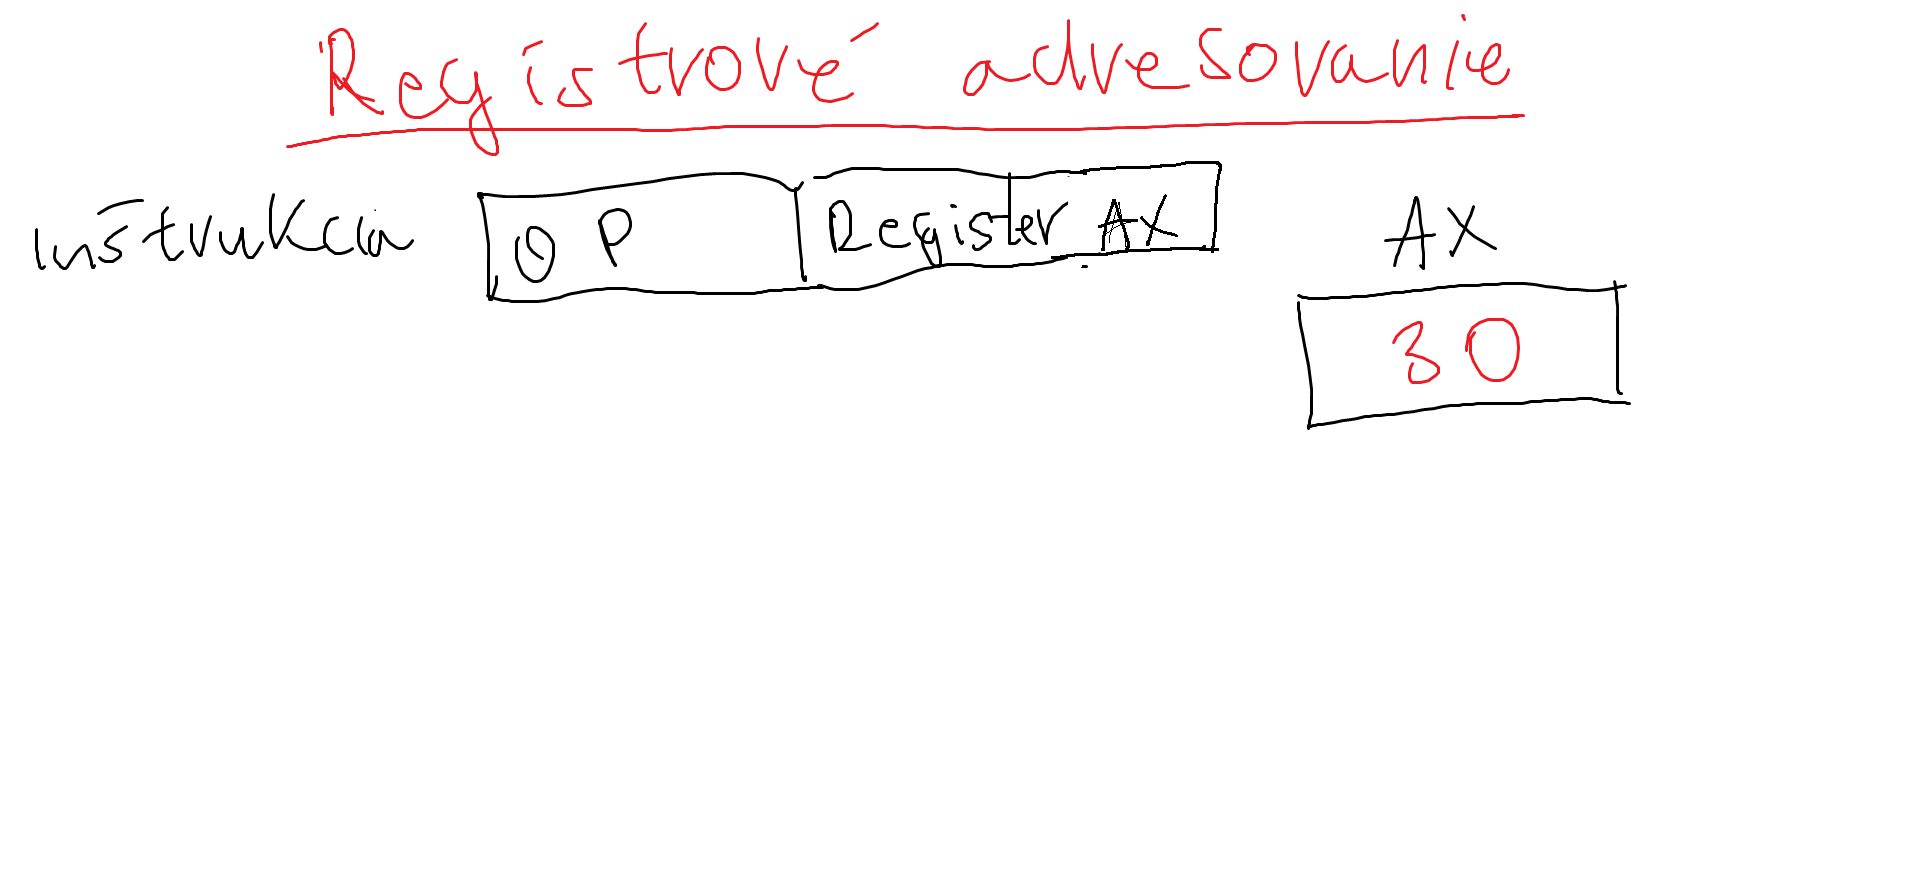 Registrové adresovanie
inštrukcia OP Register AX AX
30